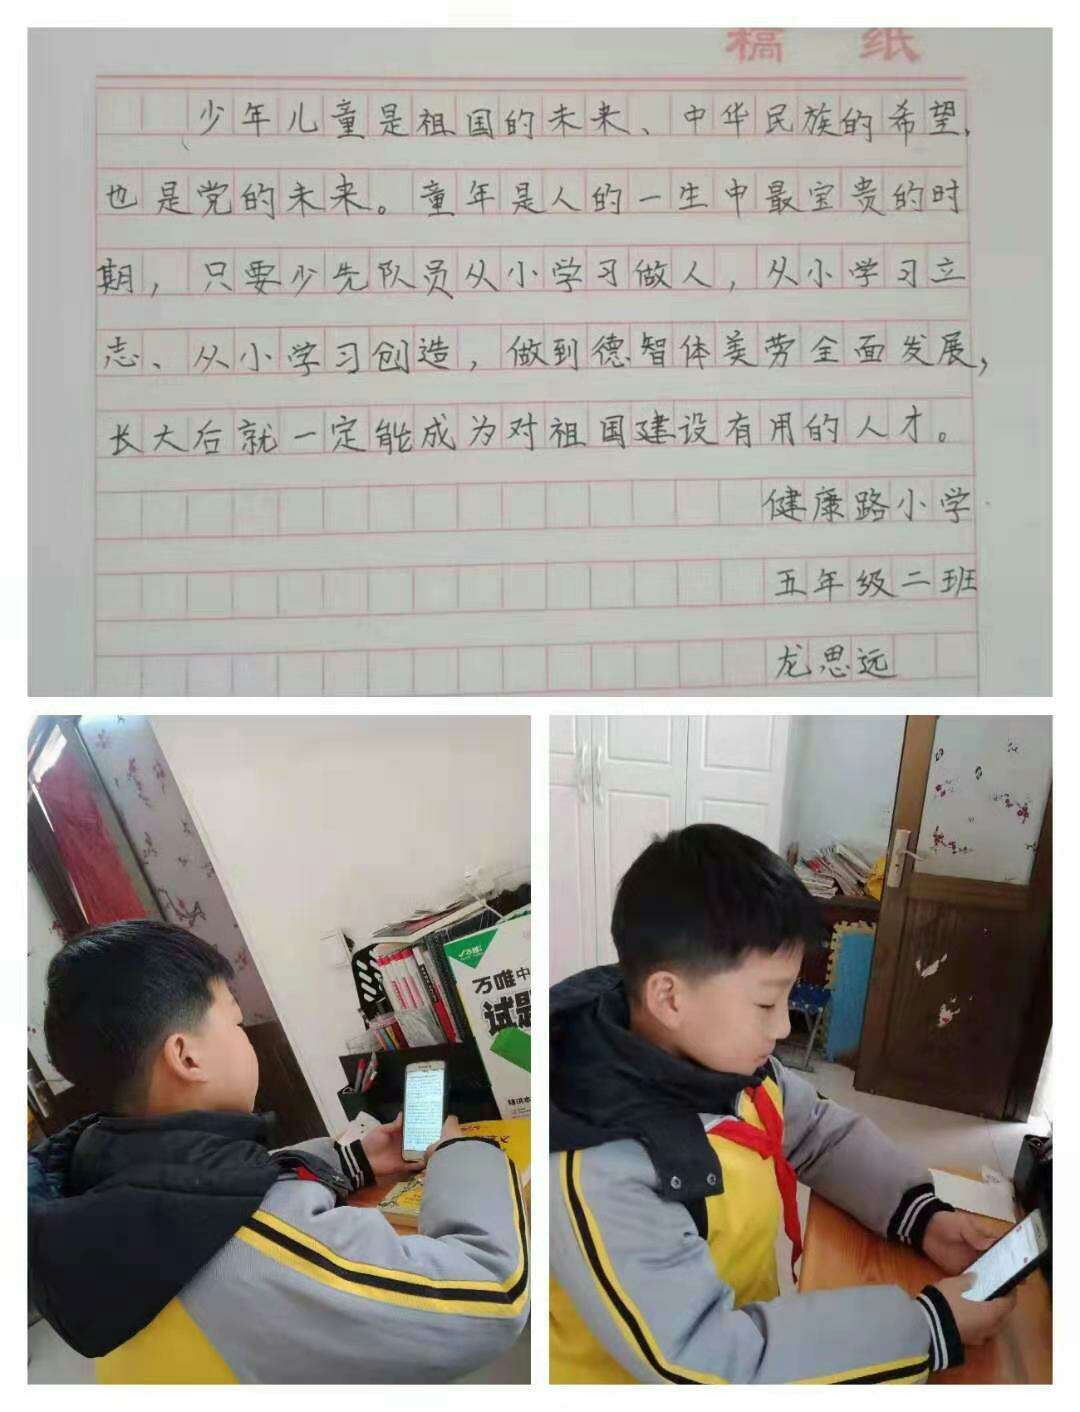 稿 纸
少年儿童是祖国的未来、中华民族的希望,
也是党的未来。童年是人的一生中最宝贵的时
期，只要少先队员从小学习做人，从小学习立
志、从小学习创造，做到德智体美劳全面发展，
长大后就一定能成为对祖国建设有用的人才。
健康路小学
五年级二班
龙思远
万唯中
试题